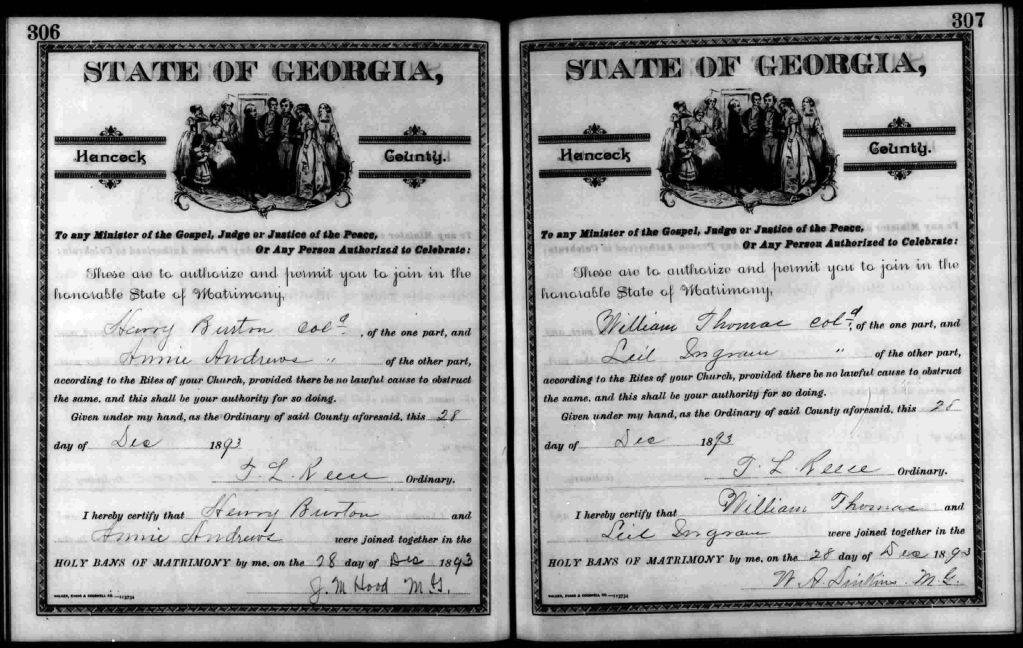 306
STATE OF GEORGIA,
Hancock County.
To any Minister of the Gospel, Judge or Justice of the Peace,
Or Any Person Authorized to Celebrate:
These are to authorize and permit you to join in the
honorable State of Matrimony,
Henry Burton Cold, of the one part, and
Annie Andrews " of the other part,
according to the Rites of your Church, provided there be no lawful cause to obstruct
the same, and this shall be your authority for so doing.
Given under my hand, as the Ordinary of said County aforesaid, this 28
day of Dec 1893
T. L. Reese Ordinary.
I hereby certify that Henry Burton and
Annie Andrews were joined together in the
HOLY BANS OF MATRIMONY by me, on the 28 day of Dec 1893
J. M Hood M.G.
307
STATE OF GEORGIA,
Hancock County.
To any Minister of the Gospel, Judge or Justice of the Peace,
Or Any Person Authorized to Celebrate:
These are to authorize and permit you to join in the
honorable State of Matrimony,
William Thomas Cold, of the one part, and
Ingram " of the other part,
according to the Rites of your Church, provided there be no lawful cause to obstruct
the same, and this shall be your authority for so doing.
Given under my hand, as the Ordinary of said County aforesaid, this 28
day of Dec 1893
T. L. Reese Ordinary.
I hereby certify that William Thomas and
Ingram were joined together in the
HOLY BANS OF MATRIMONY by me, on the 28 day of Dec 1893
W. A. M.G.